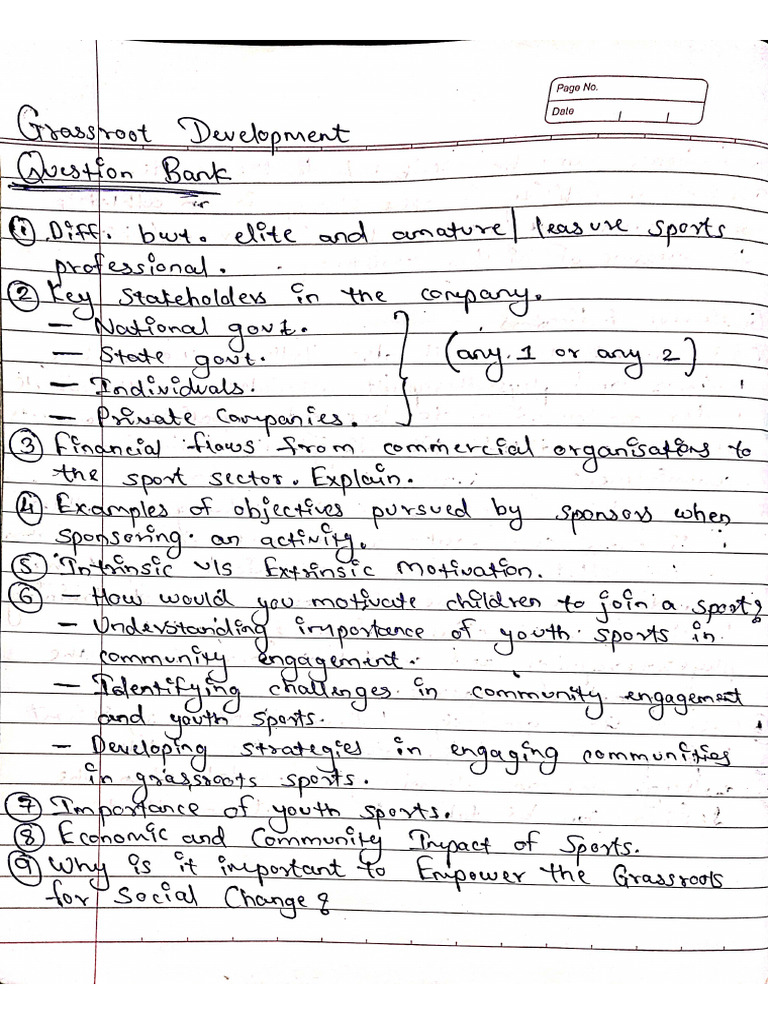 Page No.
Date
Grassroot Development
Question Bank
① Diff. bwt. elite and amature/leasure sports
professional.
② Key Stakeholders in the company.
- National govt.
- State govt.
(any 1 or any 2)
- Individuals.
- Private Companies.
③ Financial flows from commercial organisations to
the sport sector. Explain.
④ Examples of objectives pursued by sponsors when
sponsoring an activity.
⑤ Intrinsic v/s Extrinsic Motivation.
⑥ - How would you motivate children to join a sport?
- Understanding importance of youth sports in
community engagement.
- Identifying challenges in community engagement
and youth sports.
- Developing strategies in engaging communities
in grassroots sports.
⑦ Importance of youth sports.
⑧ Economic and Community Impact of Sports.
⑨ Why is it important to Empower the Grassroots
for Social Change?